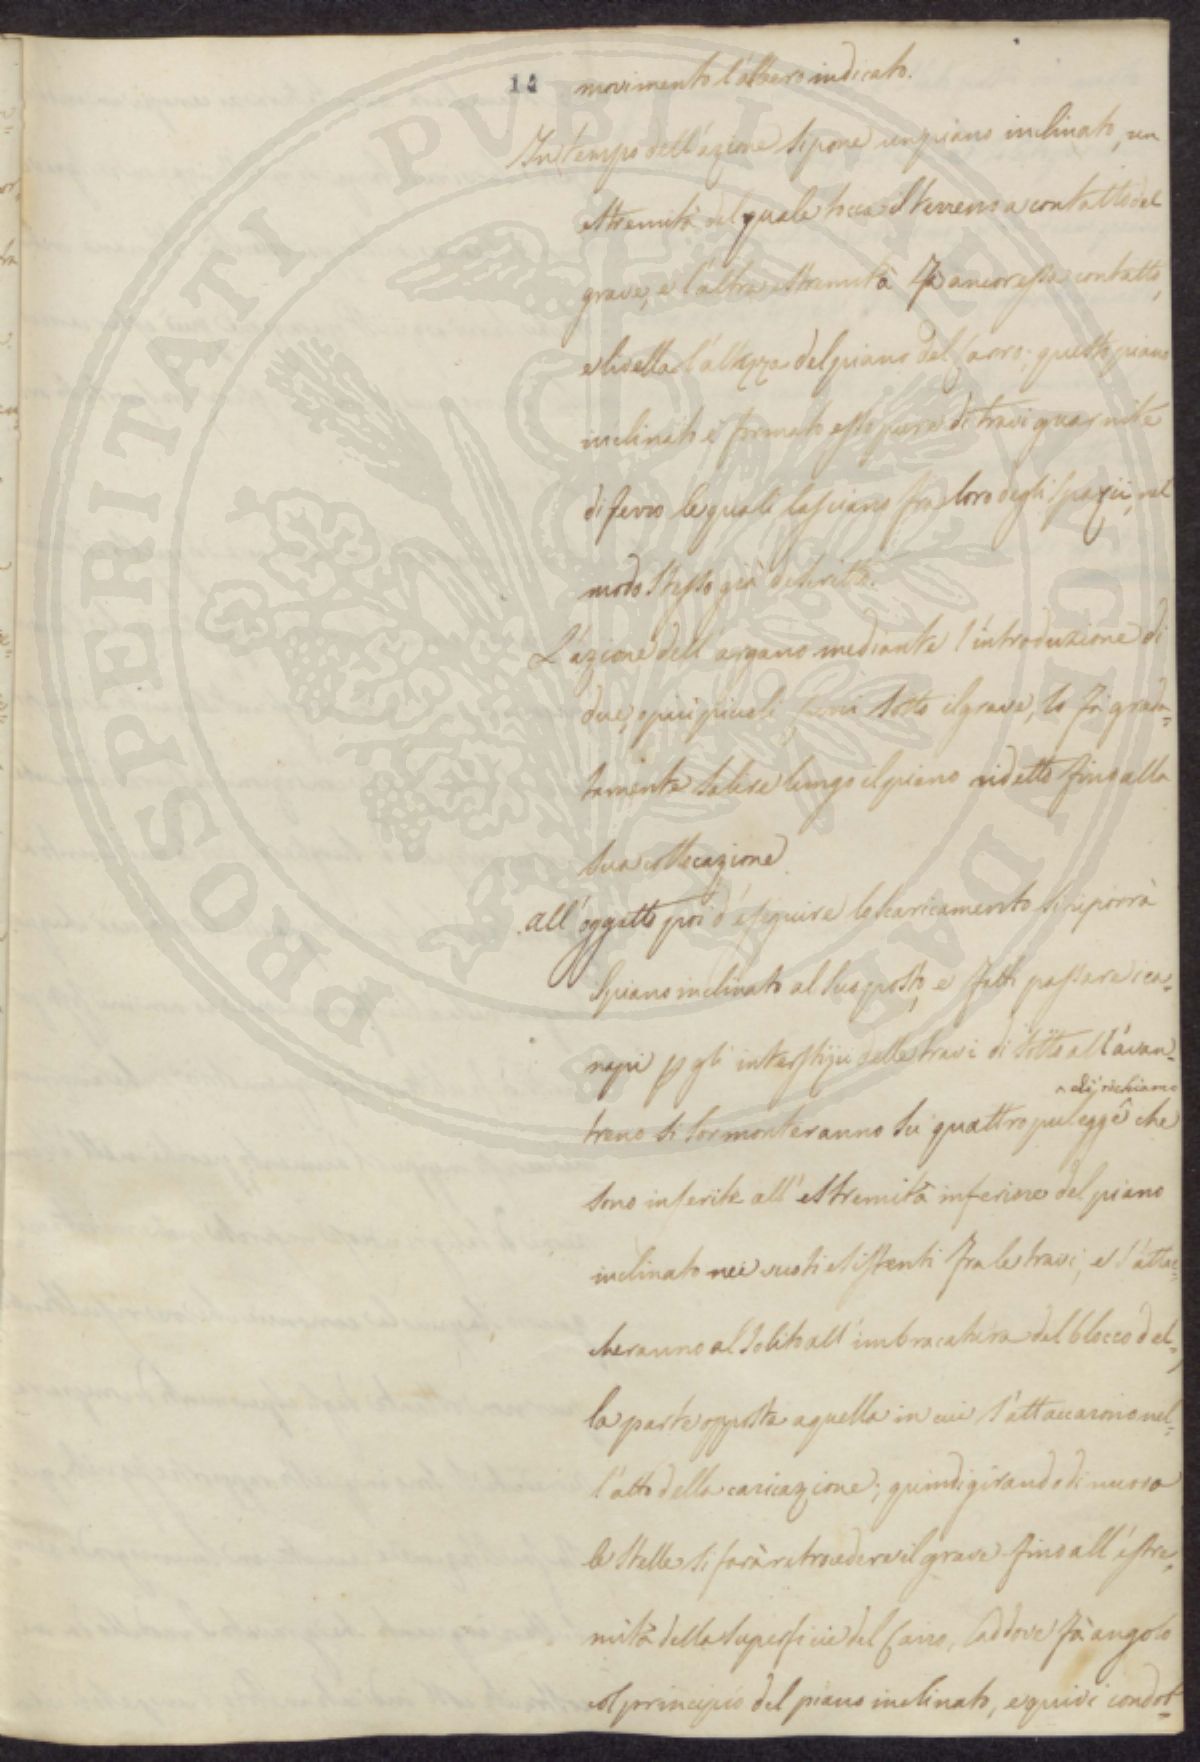 14 movimento l'albero indicato.
In tempo dell'azione si pone un piano inclinato, un
estremità del quale tocca il terreno a contatto del
grave, e l'altra estremità fà ancor essa contatto,
e livella l'altezza del piano del Carro; questo piano
inclinato è formato esso pure di travi guarnite
di ferro le quali lasciano fra loro degli spazii, nel
modo stesso già descritto.
L'azione dell'argano mediante l'introduzione di
due, o piu piccoli sotto il grave, lo fà grada=
tamente salire lungo il piano ridetto fino alla
sua collocazione.
All'oggetto poi d'eseguire lo scaricamento si riporrà
il piano inclinato al suo posto, e fatti passare i ca=
napi p gli interstizii delle travi di sotto all'avan=
treno si sormonteranno su quattro pulegge ^ di richiamo che
sono inserite all'estremità inferiore del piano
inclinato nei vuoti esistenti fra le travi, e s'attac=
cheranno al solito all'imbracatura del blocco del=
la parte opposta a quella in cui s'attaccarono nel=
l'atto della caricazione; quindi girando di nuovo
le stelle si farà retrocedere il grave fino all'estre=
mità della superficie del Carro, laddove fà angolo
col principio del piano inclinato, e quivi condot=
PROSPERITATI PUBLICAE AUGENDAE